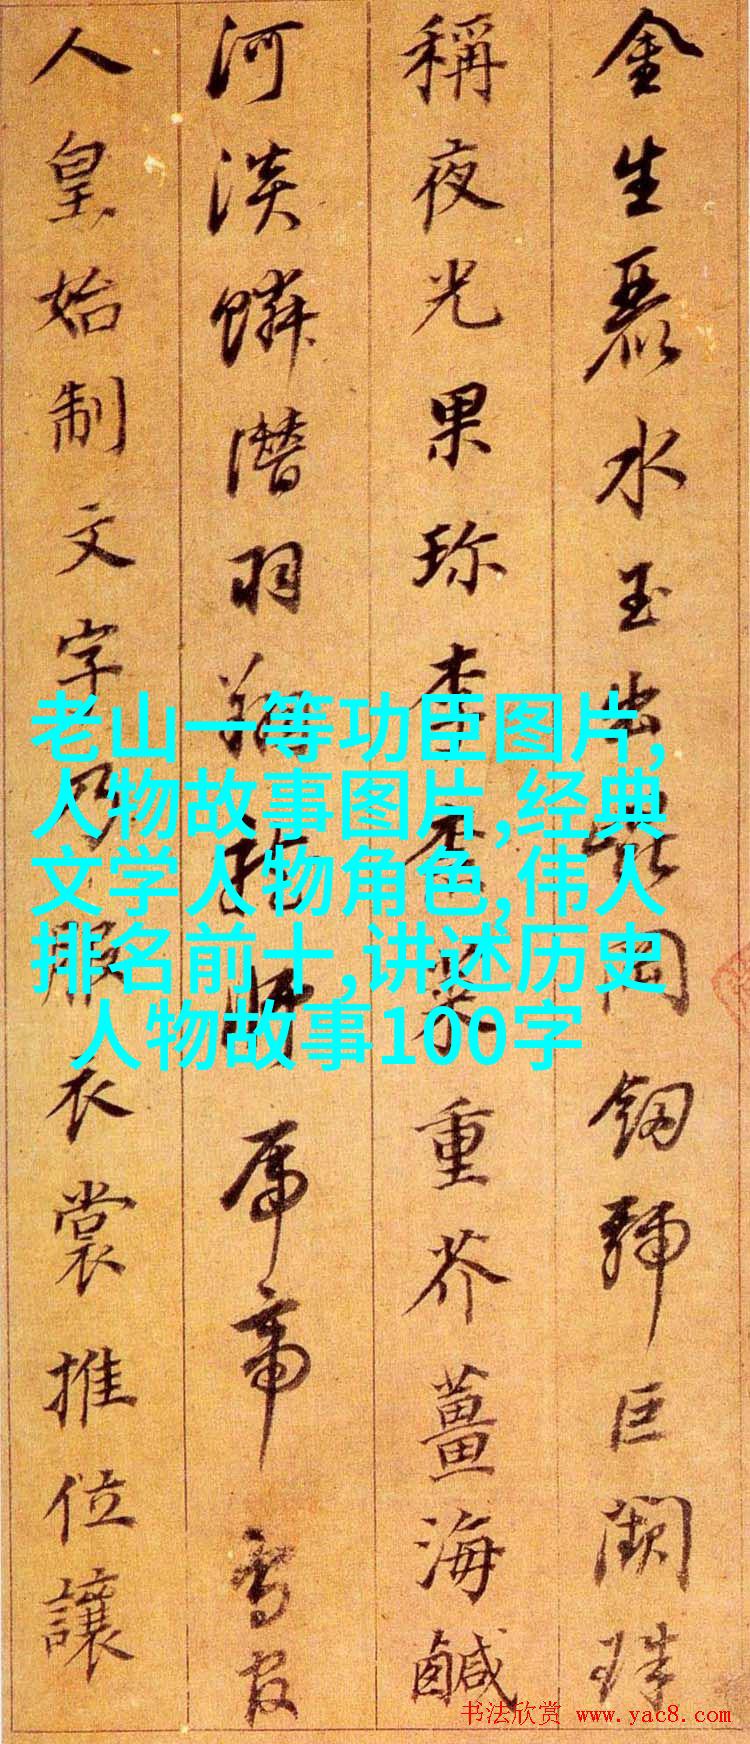 金生麗水玉出崑岡劔號巨闕珠
稱夜光果珍李柰菜重芥薑海鹹
河淡鱗潛羽翔龍師帝鳥官
人皇始制文字乃服衣裳推位讓
老山一等功臣图片,
人物故事图片,经典
文学人物角色,伟人
排名前十,讲述历史
人物故事100字
书法欣赏 www.yac8.com